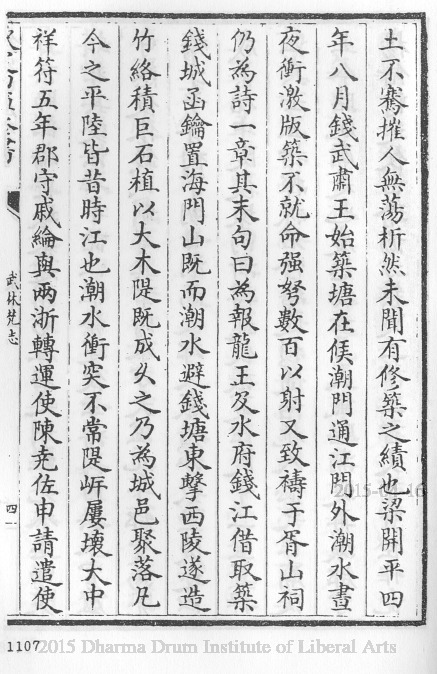 土不騫摧人無蕩析然未聞有修築之績也梁開平四
年八月錢武肅王始築塘在候潮門通江門外潮水晝
夜衝激版築不就命强弩數百以射又致禱于胥山祠
仍為詩一章其末句曰為報龍王及水府錢江借取築
錢城函鑰置海門山既而潮水避錢塘東擊西陵遂造
竹絡積巨石植以大木隄既成久之乃為城邑聚落凡
今之平陸皆昔時江也潮水衝突不常隄岸屢壞大中
祥符五年郡守戚綸與兩浙轉運使陳堯佐申請遣使
武林梵志
四
2015-04-16
1107
2015 Dharma Drum Institute of Liberal Arts